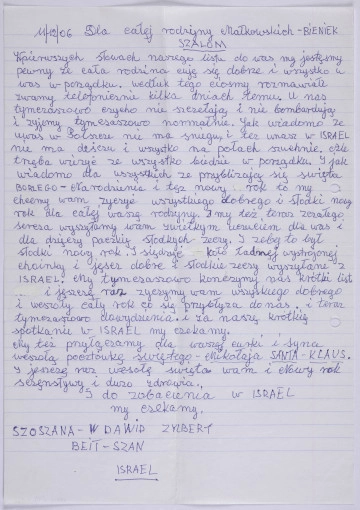 11/12/06 Dla całej rodziny Małkowskich-BIENIEK
SZALOM
W pierwszych słowach naszego listu do was my jesteśmy
pewny że cała rodzina czuję się dobrze i wszystko u
was w porządku, według tego cośmy rozmawiali
z wamy telefonicznie kilka dniach temu. U nas
tymczasowo cicho nie szczelają i nie bombardują
i żyjemy tymczasowo normalnie. Jak wiadomo że
u was w Polsce nie ma śniegu, i też u nasz w ISRAEL
nie ma dżeczu i wszystko na polach szuchnie, ale
trzeba wieżyć że wszystko biedzie w porządku. I jak
wiadomo dla wszystkich że przybliżają się święta
BOŻEGO-Narodzenia i też nowy rok to my
chcemy wam życzyć wszystkiego dobrego i słodki nowy
rok dla całej waszej rodziny. I my też teraz z całego
serca wyszyłamy wam z wielkim uczuciem dla was i
dla dzieczy paczkię słodkich żeczy. I żeby to był
słodki nowy rok. I siądnie koło ładnej wystrojonej
choinky i jeszcz dobre i słodkie żeczy wyszyłane z
ISRAEL. My tymczasowo kończymy nasz krótki list
i jeszcze raz życzymy wam wszyskiego dobrego
i weszoły cały rok co się przybliża do nas. i teraz
tymczasowo dowydzenia. i za naszę krótkię
spotkanie w ISRAEL my czekamy.
My też przyłączamy dla waszej curki i syna
weszołą pocztówkę świętego-Mikołaja SANTA-KLAUS.
I jeszczę raz weszołę święta wam i Nowy rok
szczęnśtywy i dużo zdrowia.,
I do zobaczenia w ISRAEL
my czekamy.
SZOSZANA-W DAWID ZYLBERT
BEIT-SZAN
ISRAEL